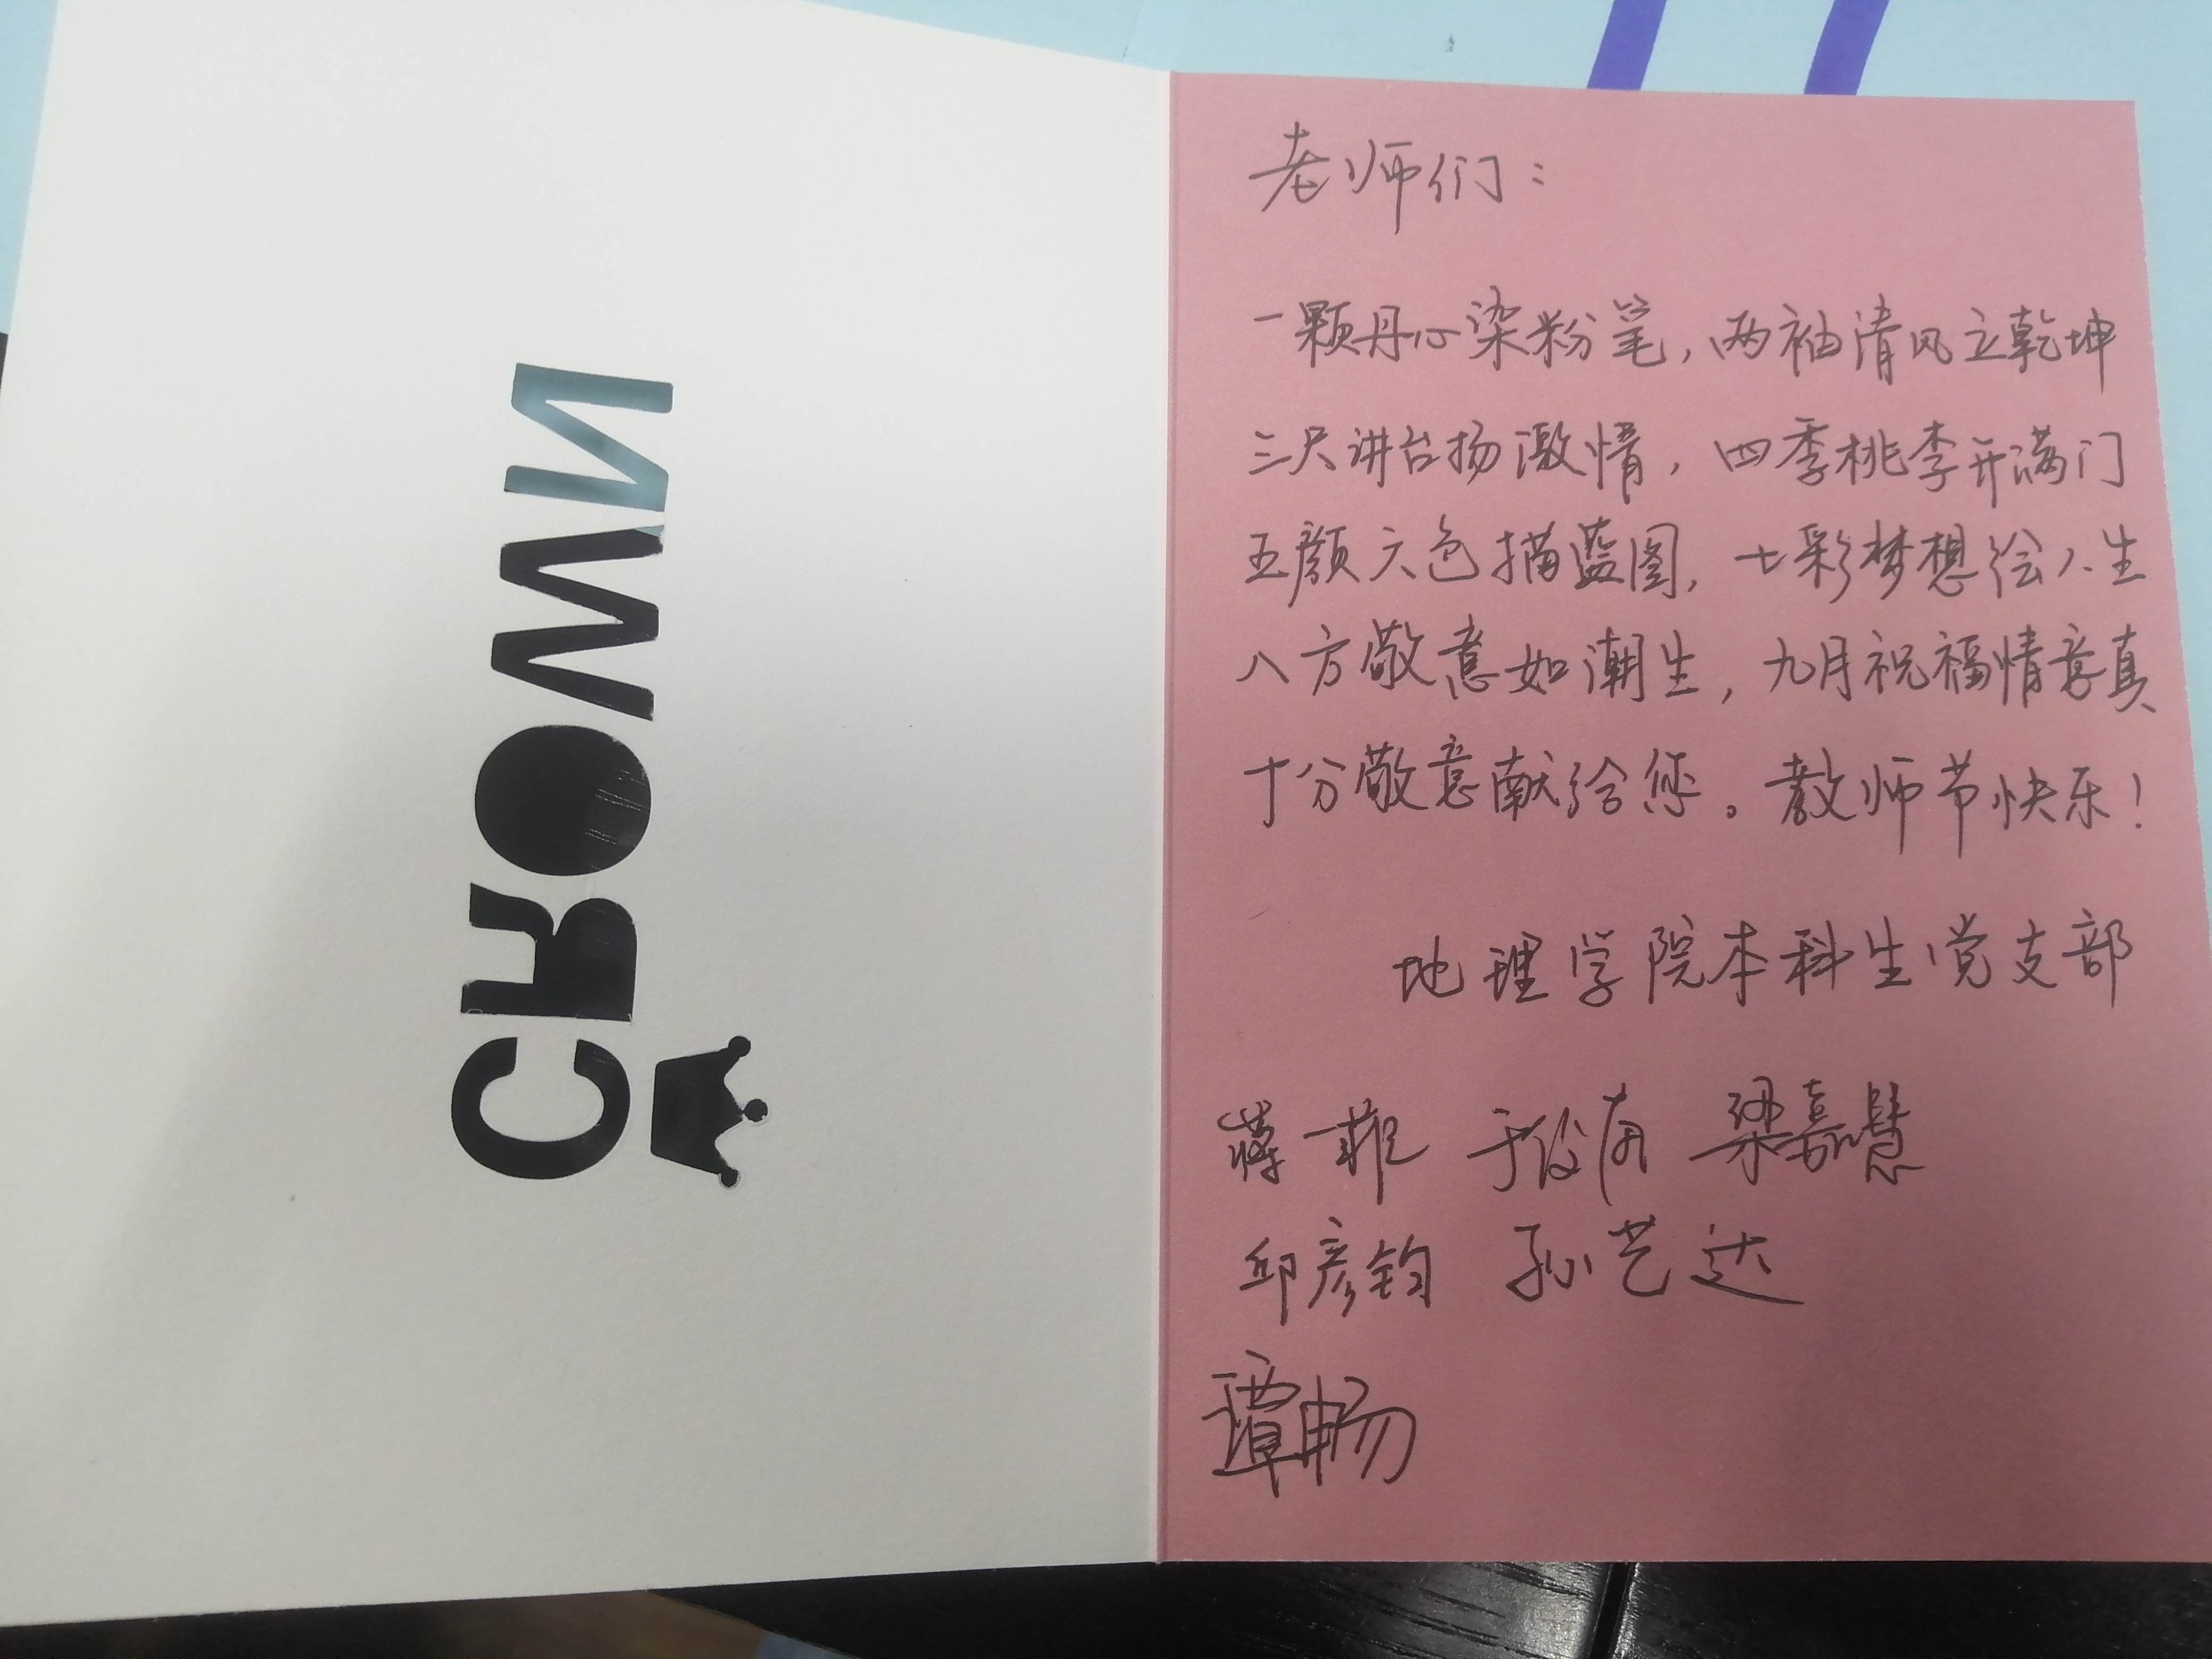 CROWN
老师们:
一颗丹心染粉笔,两袖清风立乾坤
三尺讲台扬激情,四季桃李开满门
五颜六色描蓝图,七彩梦想绘人生
八方敬意如潮生,九月祝福情意真
十分敬意献给您。教师节快乐!
地理学院本科生党支部
蒋菲 梁嘉慧
邱彦钧 孙艺达
谭畅